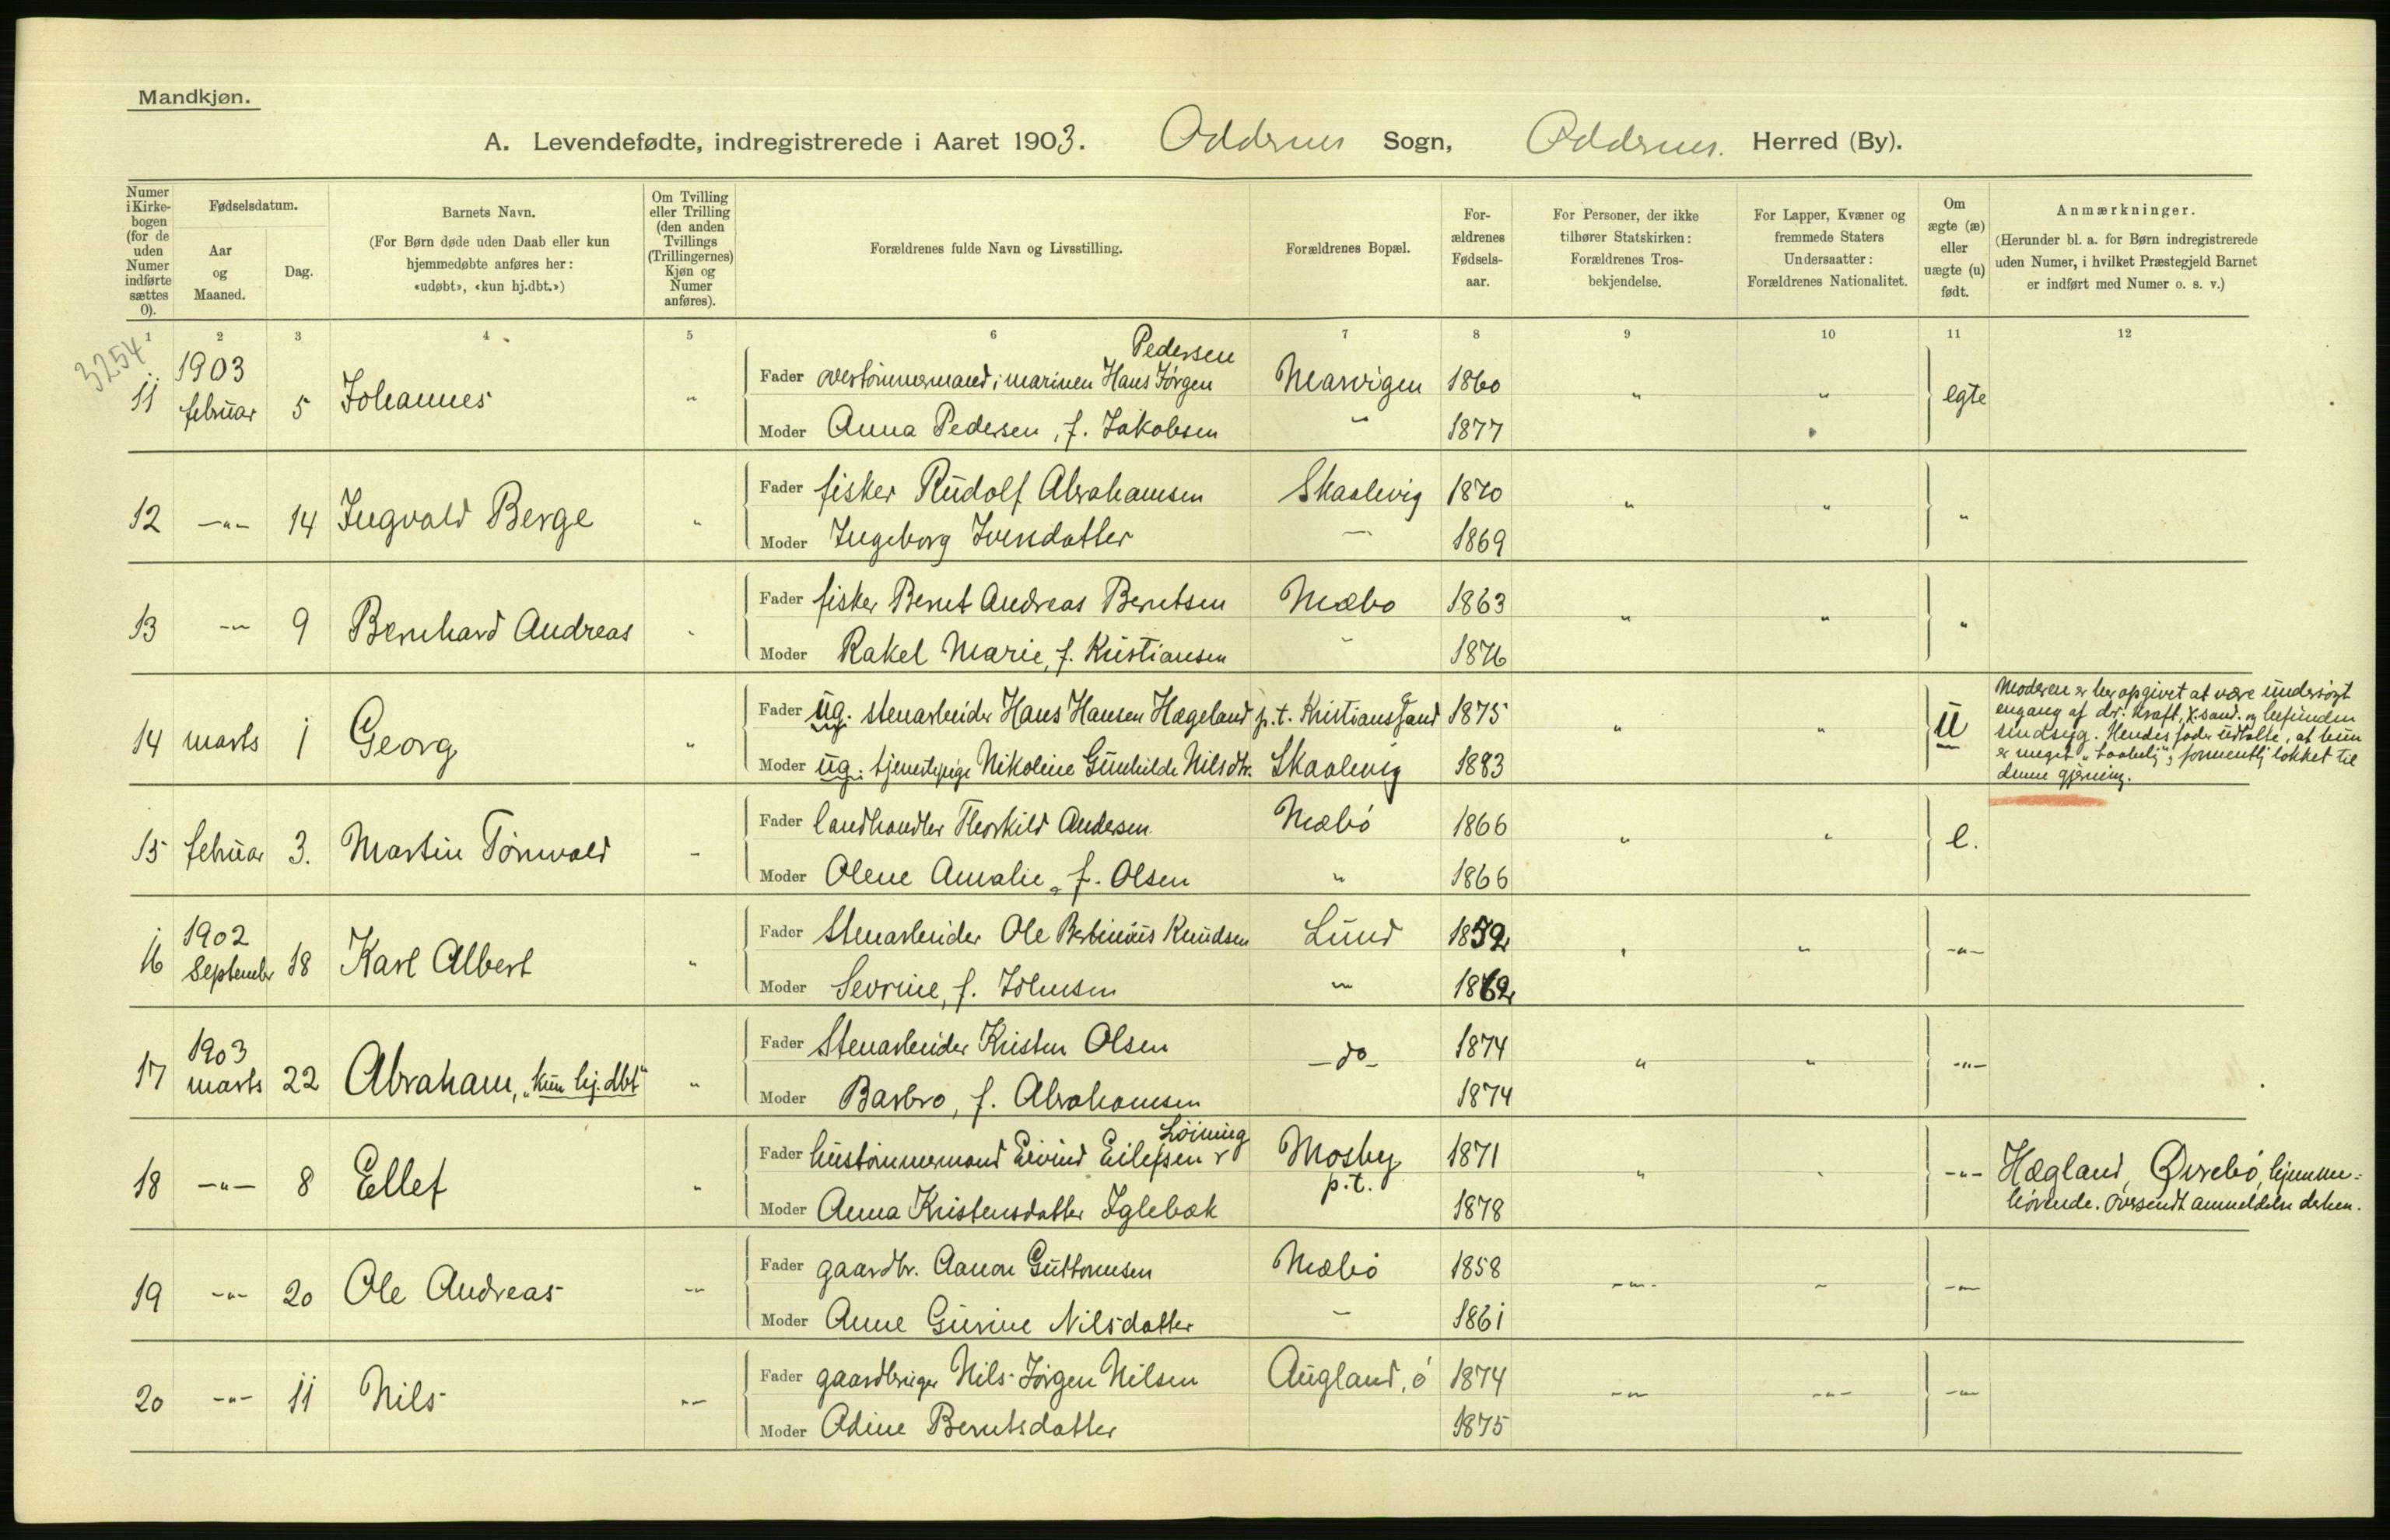 Mandkjøn.
A. Levendefødte, indregistrerede i Aaret 1903. Oddernes Sogn, Oddernes. Herred (By).
Numer i Kirke-bogen (for de uden Numer indførte sættes 0).
Fødselsdatum.
Aar og Maaned.
Dag.
Barnets Navn.
(For Børn døde uden Daab eller kun hjemmedøbte anføres her: «udøbt», «kun hj.dbt.»)
Om Tvilling eller Trilling (den anden Tvillings (Trillingernes) Kjøn og Numer anføres).
Forældrenes fulde Navn og Livsstilling.
Forældrenes Bopæl.
For-ældrenes Fødsels-aar.
For Personer, der ikke tilhører Statskirken: Forældrenes Tros-bekjendelse.
For Lapper, Kvæner og fremmede Staters Undersaatter: Forældrenes Nationalitet.
Om ægte (æ) eller uægte (u) født.
Anmærkninger.
(Herunder bl. a. for Børn indregistrerede uden Numer, i hvilket Præstegjeld Barnet er indført med Numer o. s. v.)
1 2 3 4 5 6 7 8 9 10 11 12
3254
Pedersen
11 1903 februar 5 Johannes " Fader overtømmermand i marinen Hans Jørgen Marvigen 1860 " " egte
Moder Anna Pedersen, f. Jakobsen " 1877
12 -"- 14 Ingvald Berge " Fader fisker Rudolf Abrahamsen Skaalevig 1870 " " "
Moder Ingeborg Iversdatter — 1869
13 -"- 9 Bernhard Andreas " Fader fisker Bernt Andreas Berntsen Mæbø 1863 " " "
Moder Rakel Marie, f. Kristiansen " 1876
14 marts 1 Georg " Fader ug. stenarbeider Hans Hansen Hægeland p.t. Kristianssand 1875 " " U
Moder ug. tjenestepige Nikoline Gunhilde Nilsdtr. Skaalevig 1883
Moderen er her opgivet at være undersøgt
engang af dr. Kraft, X.sand. og befunden
sindsyg. Hendes fader udtalte, at hun
er meget "taabelig", formentlig lokket til
denne gjerning.
15 februar 3. Martin Tørnvald - Fader landhandler Therkild Andersen Mæbø 1866 " " e.
Moder Olene Amalie, f. Olsen " 1866
16 1902 September 18 Karl Albert " Fader Stenarbeider Ole Knudsen Lund 1852 " " -"-
Moder Sevrine, f. Johnsen " 1862
17 1903 marts 22 Abraham, "kun hj.dbt" " Fader Stenarbeider Kristen Olsen -do- 1874 " " -"-
Moder Barbro, f. Abrahamsen 1874
Løining
18 -"- 8 Ellef " Fader hustømmermand Eivind Eilefsen Mosby p.t. 1871 " " -"- Hægland, Øvrebø, hjemme-
Moder Anna Kristensdatter Iglebæk 1878 hørende. Oversendt anmeldelse derhen.
19 -"- 20 Ole Andreas -"- Fader gaardbr. Aanon Guttormsen Mæbø 1858 -"- " -"-
Moder Anne Gurine Nilsdatter " 1861
20 -"- 11 Nils -"- Fader gaardbruger Nils Jørgen Nilsen Augland, ø 1874 -"- -"- -"-
Moder Odine Berntsdatter 1875